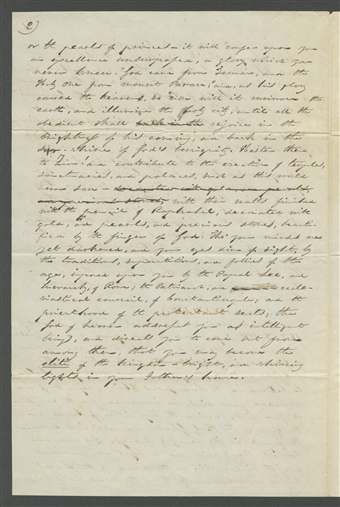 2)
or the pearls of princes – it will confer upon you
an excellence undiscovered, a glory which you
never knew. God came from Teeman, and the
Holy One from mount Paran, and as his glory
covered the heavens, so Zion will it enrich the
earth, and illumine the holy city, until all the
obedient shall rejoice in the
brightness of his coming, and bask in the
sun-shine of God's benignity. Hasten then
to Zion! and contribute to the erection of temples,
sanctuaries, and palaces, such as this world
never saw – with their walls finished
with the pencil of Raphael, decorated with
gold, and pearls, and precious stones, beauti-
fied by the finger of God. Tho' your minds are
yet darkened, and your eyes dim of sight, by
the traditions, superstitions, and follies of the
ages, imposed upon you by the Papal See, and
hierarchy, of Rome; the Patriarch, and eccle-
siastical councils, of Constantinople; and the
priesthood of the protestant sects; the
God of heaven addresses you as intelligent
beings, and directs you to come out from
among them, that you may become the
elite of the kingdom – bright, and shining
lights, in your Father's house.